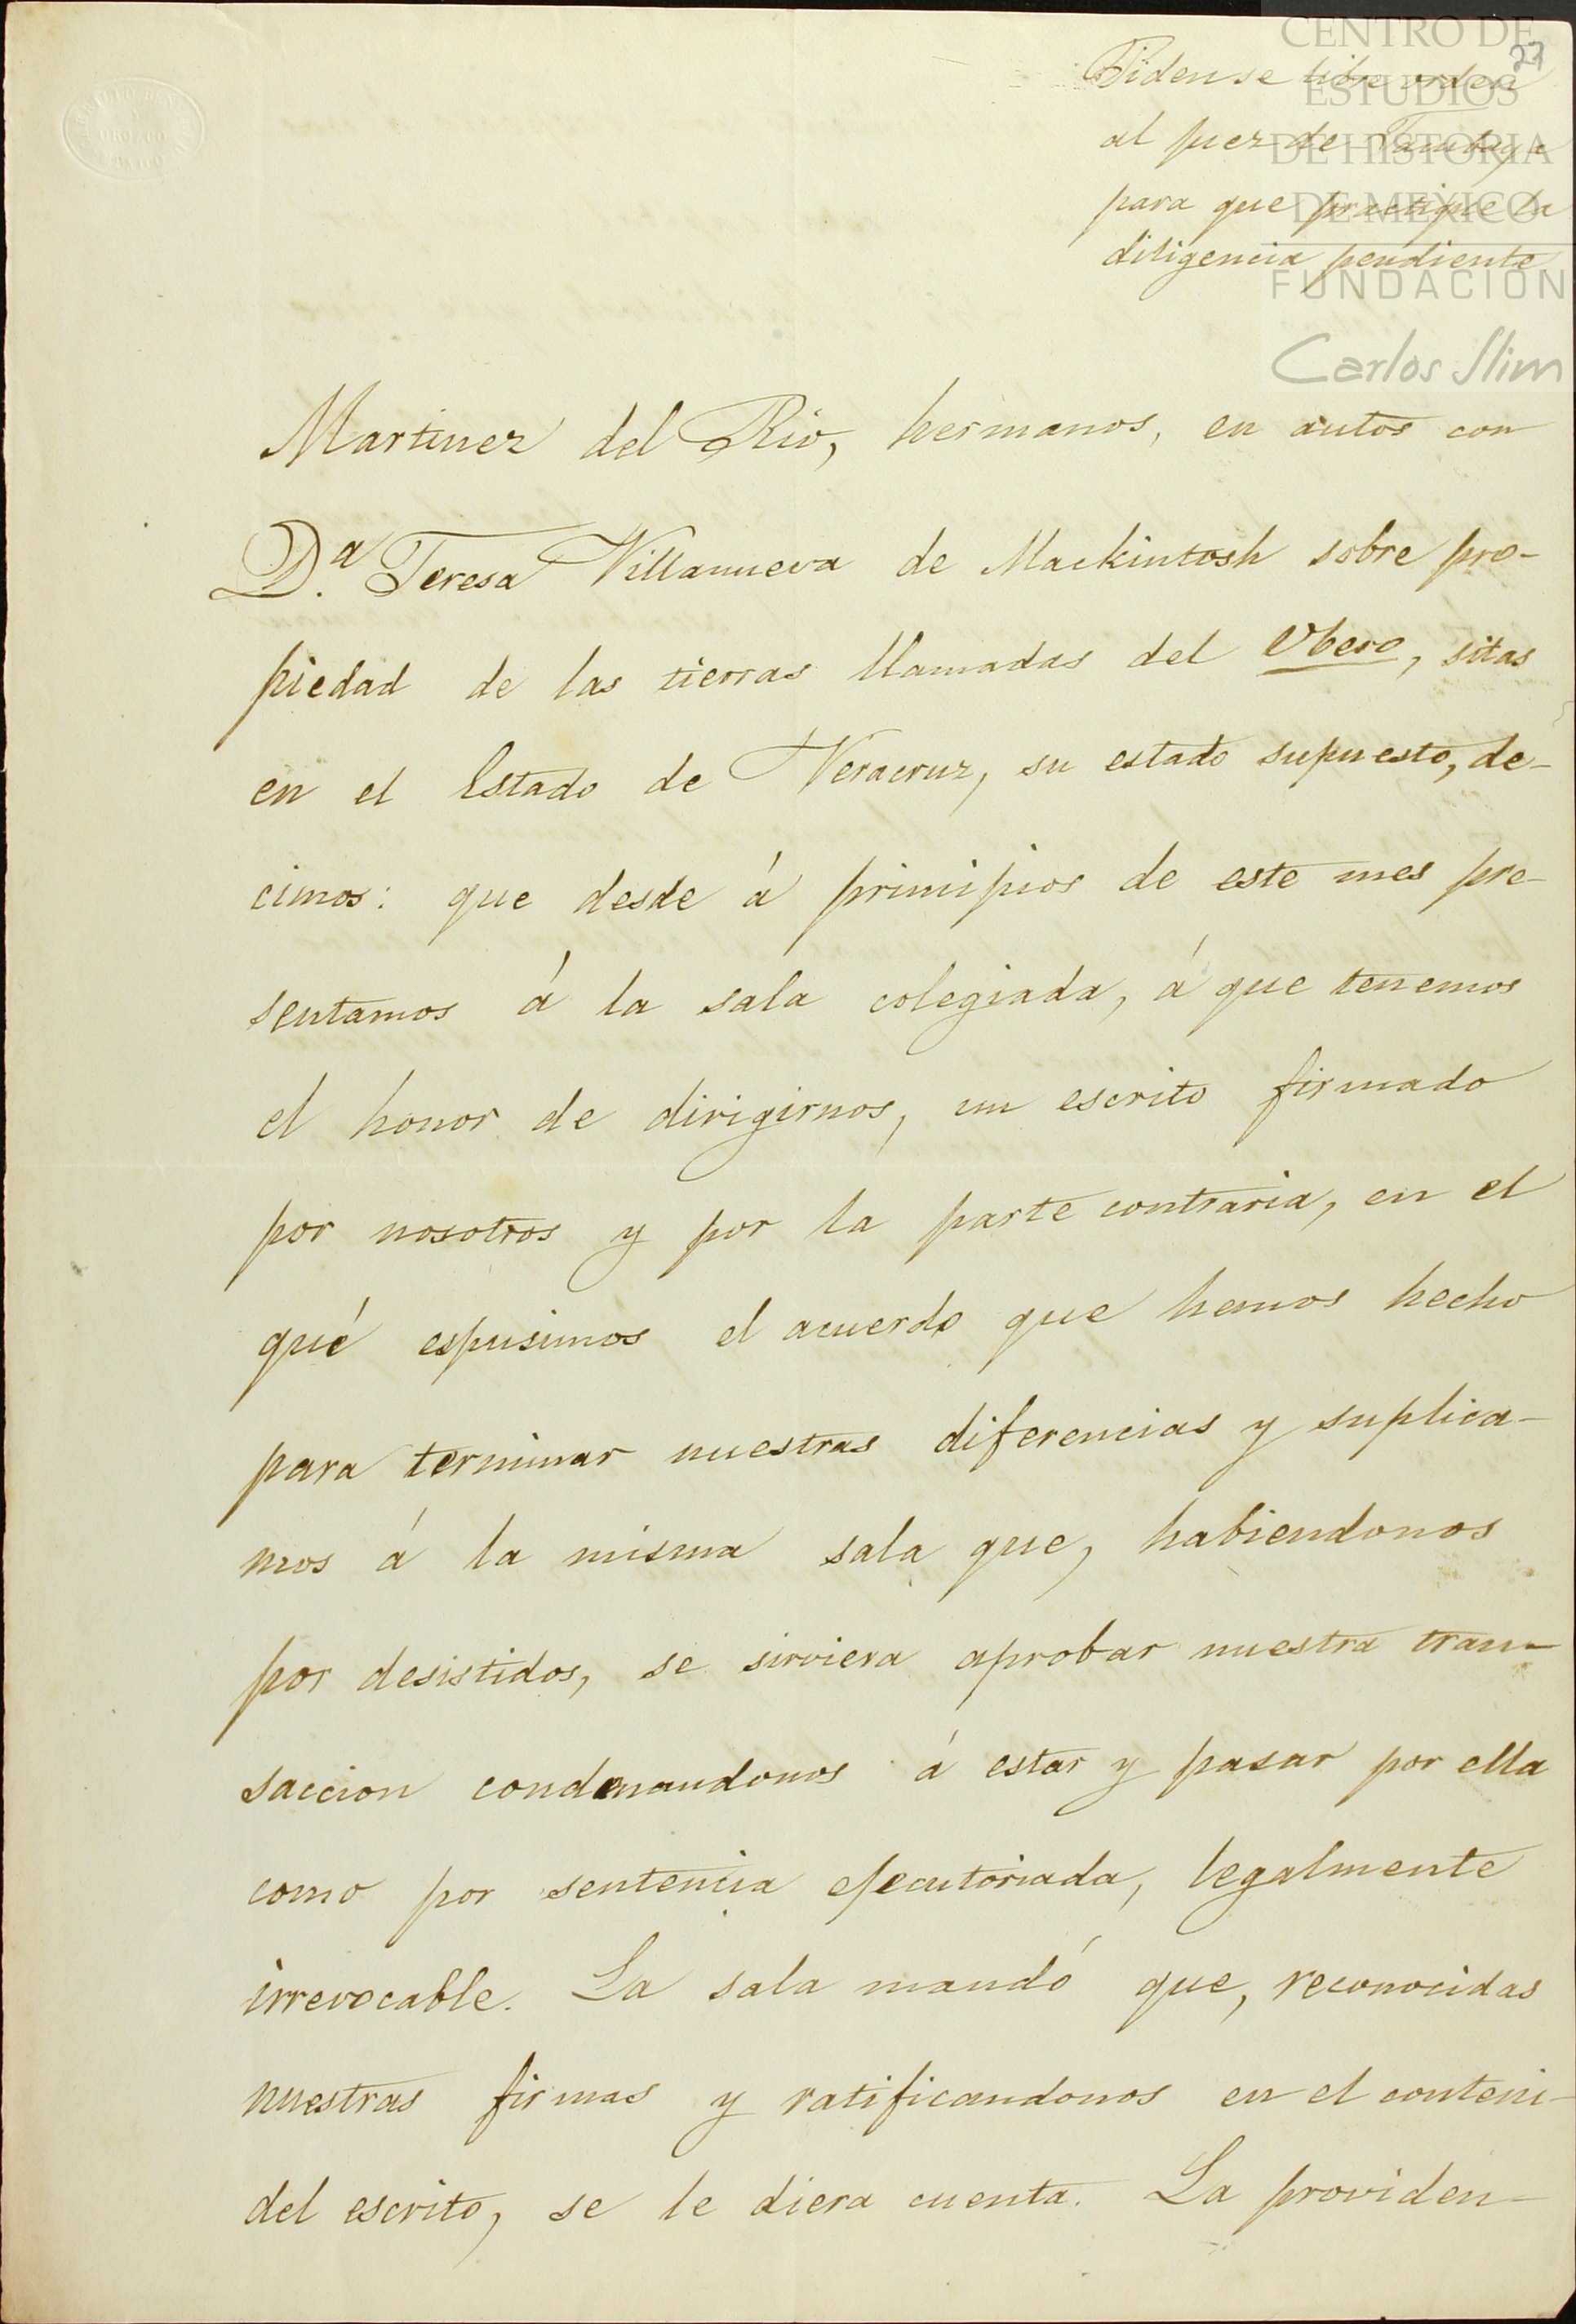 27
Pidense libre orden
al juez de Tacubaya
para que practique la
diligencia pendiente
CENTRO DE
ESTUDIOS
DE HISTORIA
DE MÉXICO
FUNDACIÓN
Carlos Slim
Martinez del Rio, hermanos, en autos con
D.ª Teresa Villanueva de Mackintosh sobre pro-
piedad de las tierras llamadas del Ubero, sitas
en el Estado de Veracruz, su estado supuesto, de-
cimos: que desde á principios de este mes pre-
sentamos á la sala colegiada, á que tenemos
el honor de dirigirnos, un escrito firmado
por nosotros y por la parte contraria, en el
qué espusimos el acuerdo que hemos hecho
para terminar nuestras diferencias y suplica-
mos á la misma sala que, habiendonos
por desistidos, se sirviera aprobar nuestra tran-
saccion condenandonos á estar y pasar por ella
como por sentencia ejecutoriada, legalmente
irrevocable. La sala mandó que, reconocidas
nuestras firmas y ratificandonos en el conteni-
del escrito, se le diera cuenta. La providen-